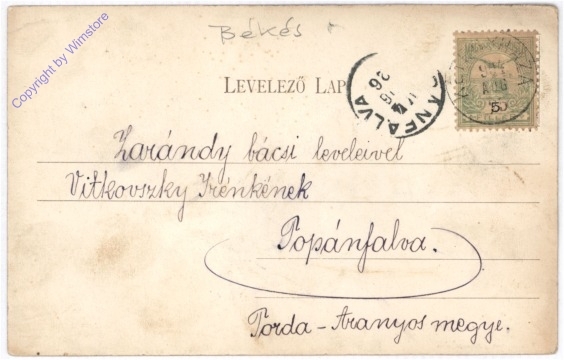 Copyright by Wimstore
Békés
LEVELEZŐ LAP
Zarándy bácsi leveleivel
Vitkovszky Irénkének
Topánfalva.
Torda-Aranyos megye.
5